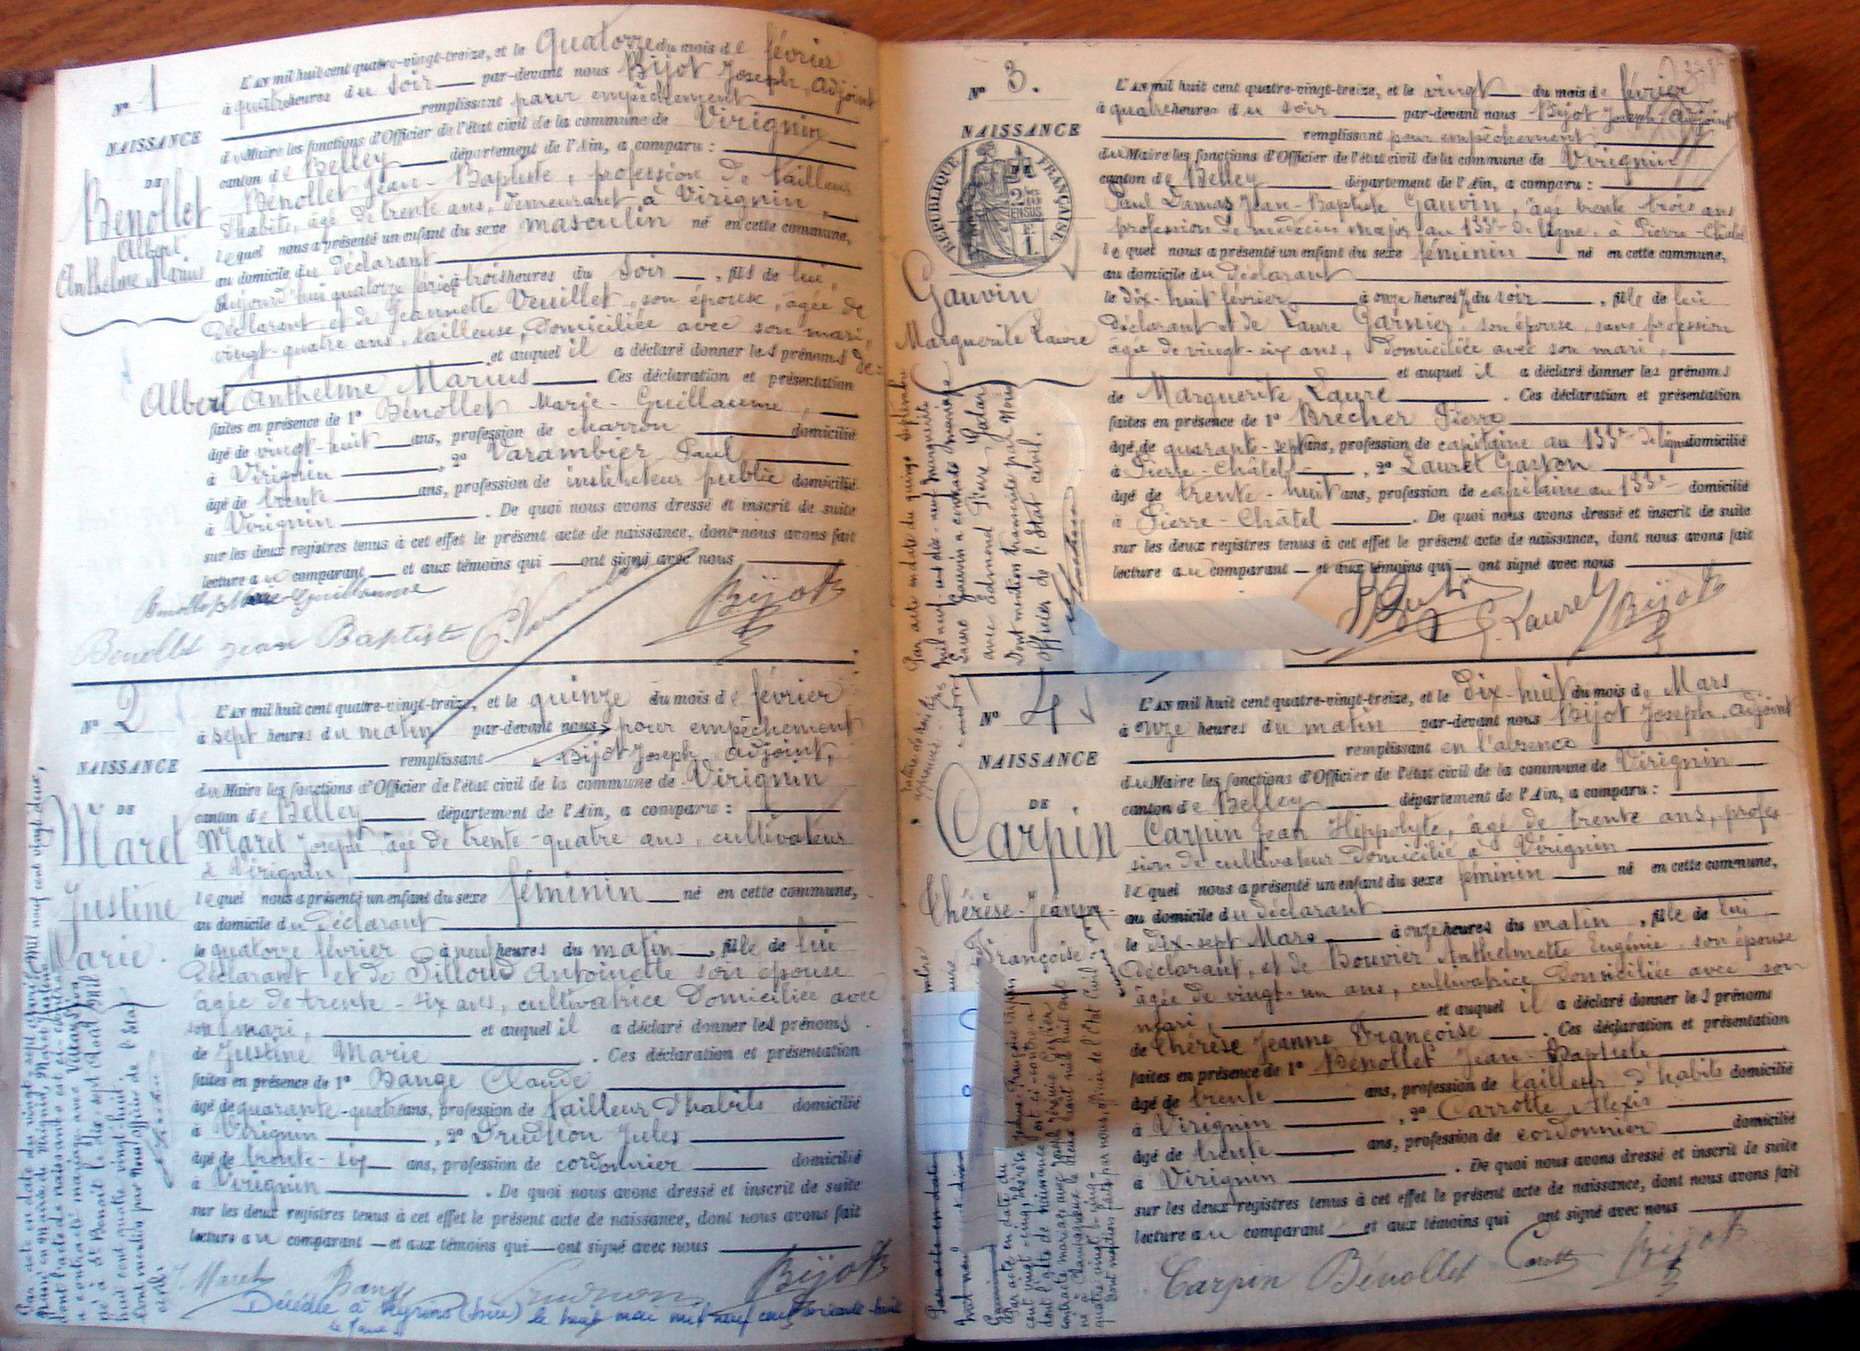 N° 1
NAISSANCE
DE
Benollet
Albert
Anthelme Marius
L'AN mil huit cent quatre-vingt-treize, et le quatorze du mois de février
à quatre heures du soir par-devant nous Bijot Joseph, adjoint
remplissant pour empêchement
du Maire les fonctions d'Officier de l'état civil de la commune de Virignin
canton de Belley département de l'Ain, a comparu :
Benollet Jean-Baptiste, profession de tailleur
d'habits, âgé de trente ans, demeurant à Virignin,
lequel nous a présenté un enfant du sexe masculin né en cette commune,
au domicile du déclarant
aujourd'hui quatorze février à trois heures du soir, fils de lui,
déclarant et de Jeannette Veuillet, son épouse, âgée de
vingt-quatre ans, tailleuse, domiciliée avec son mari,
et auquel il a déclaré donner les prénoms de :
Albert Anthelme Marius Ces déclaration et présentation
faites en présence de 1° Bénollet Marie-Guillaume,
âgé de vingt-huit ans, profession de charron domicilié
à Virignin, 2° Varambier Paul
âgé de trente ans, profession de instituteur public domicilié
à Virignin. De quoi nous avons dressé et inscrit de suite
sur les deux registres tenus à cet effet le présent acte de naissance, dont nous avons fait
lecture au comparant et aux témoins qui ont signé avec nous
Benollet Marie-Guillaume
Bénollet Jean Baptiste Bijot
N° 2
NAISSANCE
DE
Maret
Justine
Marie.
L'AN mil huit cent quatre-vingt-treize, et le quinze du mois de février
à sept heures du matin par-devant nous pour empêchement
remplissant Bijot Joseph, adjoint,
du Maire les fonctions d'Officier de l'état civil de la commune de Virignin
canton de Belley département de l'Ain, a comparu :
Maret Joseph âgé de trente-quatre ans, cultivateur
à Virignin
lequel nous a présenté un enfant du sexe féminin né en cette commune,
au domicile du déclarant
le quatorze février à neuf heures du matin, fille de lui
déclarant et de Pilloud Antoinette son épouse
âgée de trente-six ans, cultivatrice domiciliée avec
son mari, et auquel il a déclaré donner les prénoms
de Justine Marie. Ces déclaration et présentation
faites en présence de 1° Bange Claude
âgé de quarante-quatre ans, profession de tailleur d'habits domicilié
à Virignin, 2° Prudhon Jules
âgé de trente-six ans, profession de cordonnier domicilié
à Virignin. De quoi nous avons dressé et inscrit de suite
sur les deux registres tenus à cet effet le présent acte de naissance, dont nous avons fait
lecture au comparant et aux témoins qui ont signé avec nous
Maret Bange Prudhon Bijot
Décédée à (Isère) le huit mai mil neuf cent soixante-huit
N° 3.
NAISSANCE
DE
RÉPUBLIQUE FRANÇAISE
Gauvin
Marguerite Laure
L'AN mil huit cent quatre-vingt-treize, et le vingt du mois de février
à quatre heures du soir par-devant nous Bijot Joseph, adjoint
remplissant pour empêchement
du Maire les fonctions d'Officier de l'état civil de la commune de Virignin
canton de Belley département de l'Ain, a comparu :
Paul Damas Jean-Baptiste Gauvin, âgé trente trois ans
profession de médecin major au 133e de ligne, à Pierre-Châtel
lequel nous a présenté un enfant du sexe féminin né en cette commune,
au domicile du déclarant
le dix-huit février à onze heures ½ du soir, fille de lui
déclarant et de Laure Garnier, son épouse, sans profession
âgée de vingt-six ans, domiciliée avec son mari,
et auquel il a déclaré donner les prénoms
de Marguerite Laure. Ces déclaration et présentation
faites en présence de 1° Brecher Pierre
âgé de quarante-sept ans, profession de capitaine au 133e de ligne domicilié
à Pierre-Châtel, 2° Lauret Gaston
âgé de trente-huit ans, profession de capitaine au 133e domicilié
à Pierre-Châtel. De quoi nous avons dressé et inscrit de suite
sur les deux registres tenus à cet effet le présent acte de naissance, dont nous avons fait
lecture au comparant et aux témoins qui ont signé avec nous
G. Lauret Bijot
Par acte en date du quinze septembre
mil neuf cent dix-neuf Marguerite
Laure Gauvin a contracté mariage
avec Edmond Pierre
Dont mention transcrite par Nous
officier de l'État civil.
N° 4
NAISSANCE
DE
Carpin
Thérèse-Jeanne
Françoise
L'AN mil huit cent quatre-vingt-treize, et le dix-huit du mois de Mars
à onze heures du matin par-devant nous Bijot Joseph, adjoint
remplissant en l'absence
du Maire les fonctions d'Officier de l'état civil de la commune de Virignin
canton de Belley département de l'Ain, a comparu :
Carpin Jean Hippolyte, âgé de trente ans, profes
sion de cultivateur domicilié à Virignin
lequel nous a présenté un enfant du sexe féminin né en cette commune,
au domicile du déclarant
le dix-sept Mars à onze heures du matin, fille de lui
déclarant, et de Bouvier Anthelmette Eugénie, son épouse
âgée de vingt-un ans, cultivatrice domiciliée avec son
mari, et auquel il a déclaré donner les prénoms
de Thérèse Jeanne Françoise. Ces déclaration et présentation
faites en présence de 1° Bénollet Jean-Baptiste
âgé de trente ans, profession de tailleur d'habits domicilié
à Virignin, 2° Carrotte Alexis
âgé de trente ans, profession de cordonnier domicilié
à Virignin. De quoi nous avons dressé et inscrit de suite
sur les deux registres tenus à cet effet le présent acte de naissance, dont nous avons fait
lecture au comparant et aux témoins qui ont signé avec nous
Carpin Bénollet Carotte Bijot